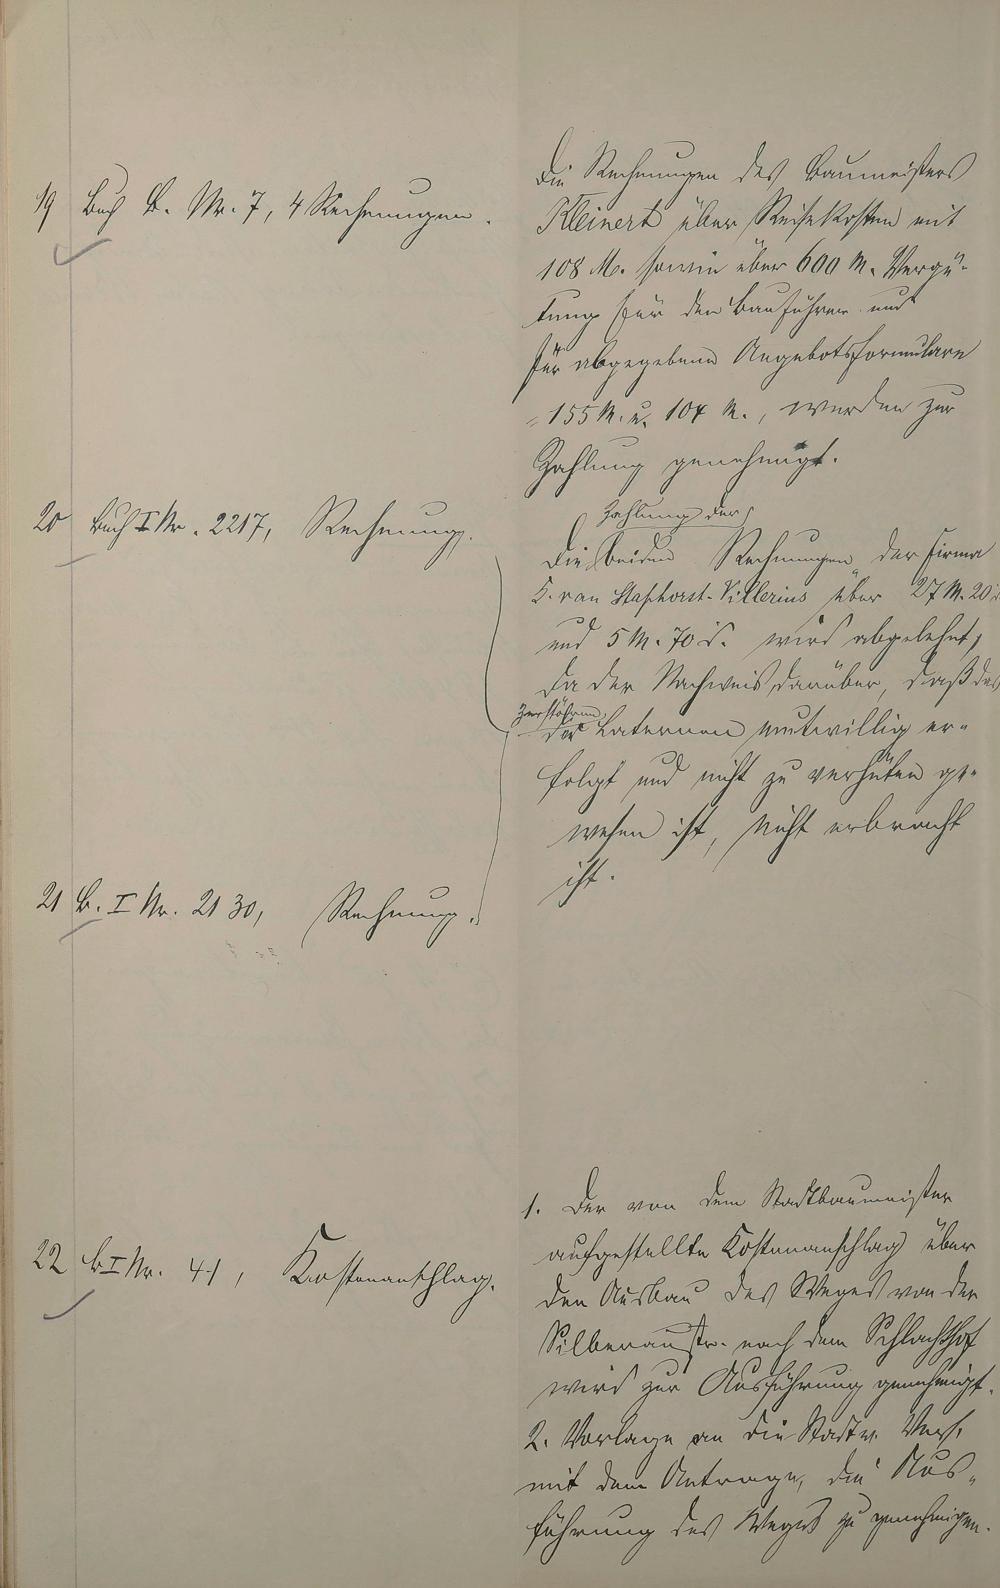 19 Buch B. Nr. 7, 4 Rechnungen.
Die Rechnungen des Baumeisters
Kleinert über Reisekosten mit
108 M. sowie über 600 M. Vergü-
tung für den Bauführer und
für abgegebene Angebotsformulare
= 155 M. u. 104 M., werden zur
Zahlung genehmigt.
20 Buch I Nr. 2217, Rechnung.
21 B. I Nr. 2130, Rechnung.
Zahlung der
Die beiden Rechnungen der Firma
van Staphorst-Villerius über 27 M. 20
und 5 M. 70 wird abgelehnt,
da der Nachweis darüber, daß das
Zerstören
der Laternen mutwillig er-
folgt und nicht zu verhüten ge-
wesen ist, nicht erbracht
ist.
22 B I Nr. 41, Kostenanschlag.
1. Der von dem Stadtbaumeister
aufgestellte Kostenanschlag über
den Ausbau des Weges von der
Silberaustr. nach dem Schlachthof
wird zur Ausführung genehmigt.
2. Vorlage an die Stadtv. Vers.
mit dem Antrage, die Aus-
führung des Weges zu genehmigen.